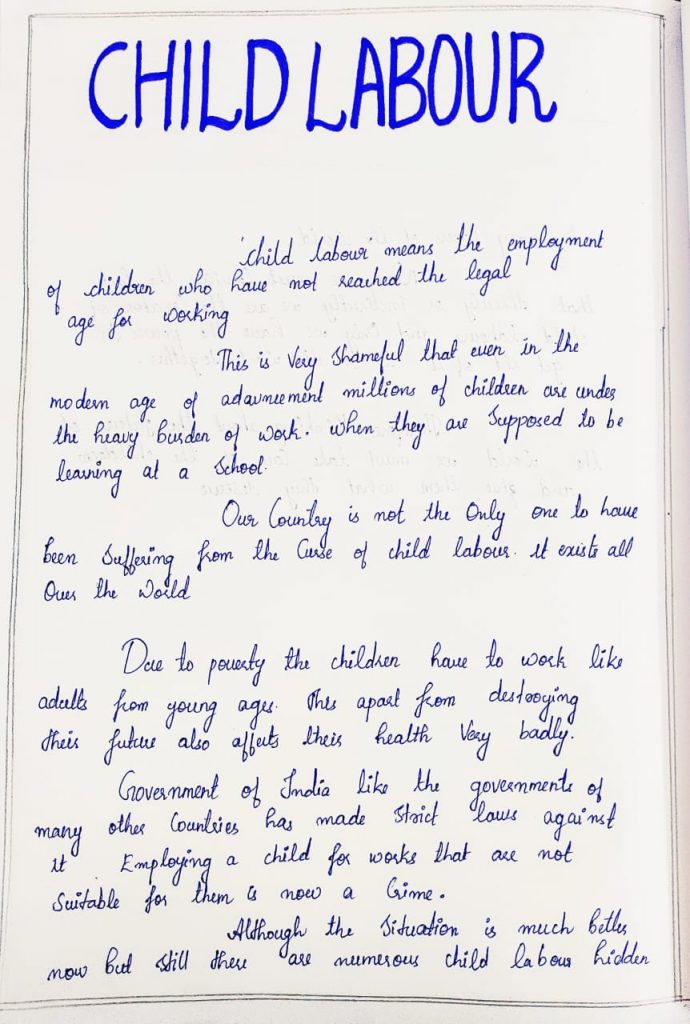 CHILD LABOUR
'child labour' means the employment
of children who have not reached the legal
age for working
This is Very Shameful that even in the
modern age of advancement millions of children are under
the heavy burden of work. when they are Supposed to be
learning at a School.
Our Country is not the Only one to have
been Suffering from the Curse of child labour. it exists all
Over the World
Due to poverty the children have to work like
adults from young ages. This apart from destroying
their future also affects their health Very badly.
Government of India like the governments of
many other Countries has made Strict laws against
it Employing a child for works that are not
Suitable for them is now a Crime.
Although the Situation is much better
now but Still there are numerous child labour hidden